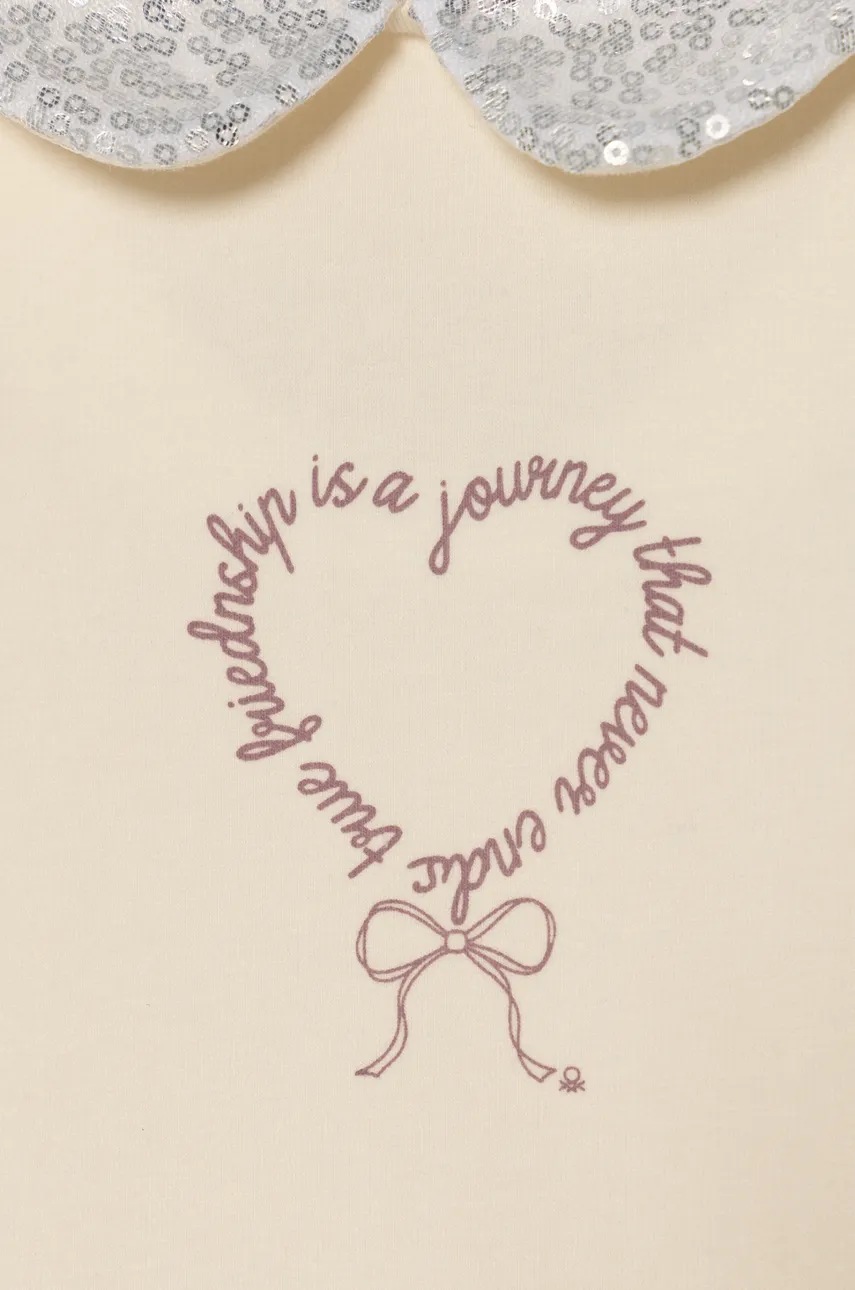 true friednship is a journey that never ends